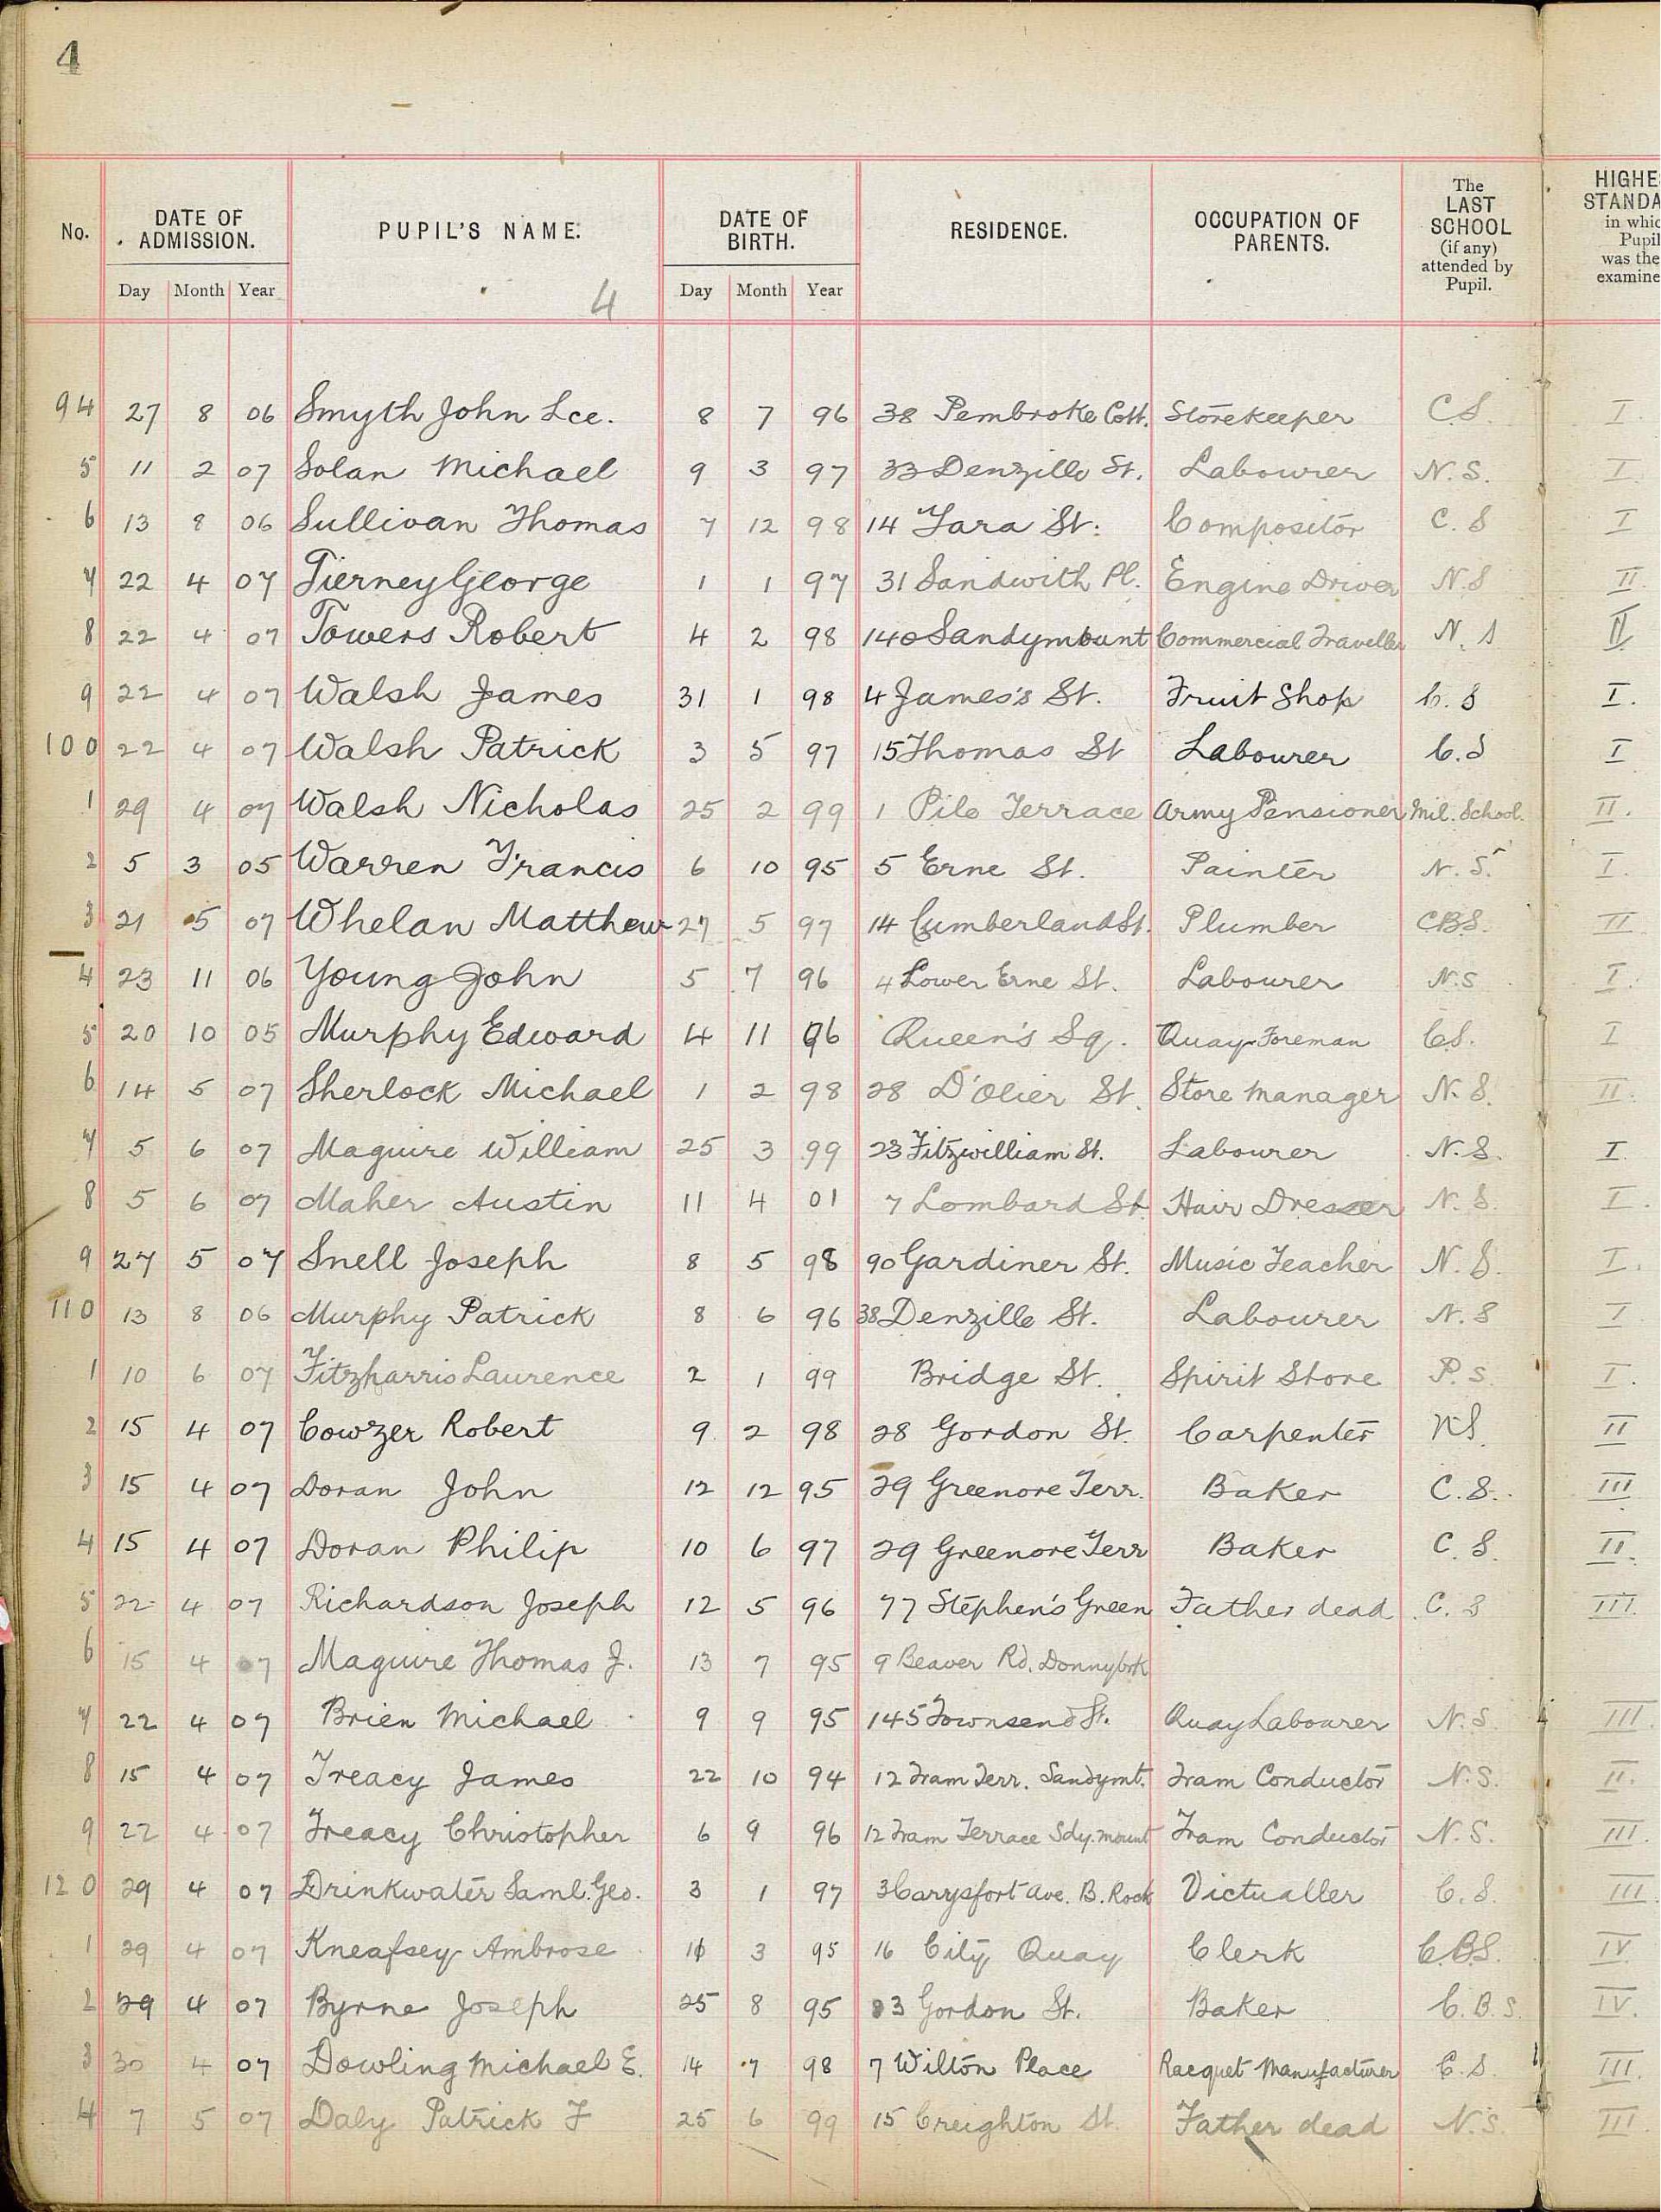 4
No. DATE OF ADMISSION. PUPIL'S NAME. DATE OF BIRTH. RESIDENCE. OCCUPATION OF PARENTS. The LAST SCHOOL (if any) attended by Pupil. HIGHE STANDA in whic Pupil was the examine
Day Month Year 4 Day Month Year
94 27 8 06 Smyth John Lce. 8 7 96 38 Pembroke Cott. Storekeeper C.S. I.
5 11 2 07 Solan Michael 9 3 97 33 Denzille St. Labourer N.S. I.
6 13 8 06 Sullivan Thomas 7 12 98 14 Tara St. Compositor C.S I
7 22 4 07 Tierney George 1 1 97 31 Sandwith Pl. Engine Driver N.S II.
8 22 4 07 Towers Robert 4 2 98 140 Sandymount Commercial Traveller N.S II
9 22 4 07 Walsh James 31 1 98 4 James's St. Fruit Shop C.S I.
100 22 4 07 Walsh Patrick 3 5 97 15 Thomas St Labourer C.S I
1 29 4 07 Walsh Nicholas 25 2 99 1 Pile Terrace Army Pensioner Mil. School. II.
2 5 3 05 Warren Francis 6 10 95 5 Erne St. Painter N.S. I.
3 21 5 07 Whelan Matthew 27 5 97 14 Cumberland St. Plumber CBS. II
4 23 11 06 Young John 5 7 96 4 Lower Erne St. Labourer N.S I.
5 20 10 05 Murphy Edward 4 11 96 Queen's Sq. Quay Foreman C.S. I
6 14 5 07 Sherlock Michael 1 2 98 28 D'Olier St. Store Manager N.S. II.
7 5 6 07 Maguire William 25 3 99 23 Fitzwilliam St. Labourer N.S. I.
8 5 6 07 Maher Austin 11 4 01 7 Lombard St. Hair Dresser N.S. I.
9 27 5 07 Snell Joseph 8 5 98 90 Gardiner St. Music Teacher N.S. I.
110 13 8 06 Murphy Patrick 8 6 96 38 Denzille St. Labourer N.S I
1 10 6 07 Fitzharris Laurence 2 1 99 Bridge St. Spirit Store P.S. I.
2 15 4 07 Cowzer Robert 9 2 98 28 Gordon St. Carpenter NS. II
3 15 4 07 Doran John 12 12 95 29 Greenore Terr. Baker C.S. III
4 15 4 07 Doran Philip 10 6 97 29 Greenore Terr Baker C.S. II.
5 22 4 07 Richardson Joseph 12 5 96 77 Stephen's Green Father dead C.S III.
6 15 4 07 Maguire Thomas J. 13 7 95 9 Beaver Rd. Donnybrk
7 22 4 07 Brien Michael 9 9 95 145 Townsend St. Quay Labourer N.S. III.
8 15 4 07 Treacy James 22 10 94 12 Tram Terr. Sandymt. Tram Conductor N.S. II.
9 22 4 07 Treacy Christopher 6 9 96 12 Tram Terrace Sdy.mount Tram Conductor N.S. III.
120 29 4 07 Drinkwater Saml. Geo. 3 1 97 3 Carysfort Ave. B. Rock Victualler C.S. III.
1 29 4 07 Kneafsey Ambrose 3 95 16 City Quay Clerk C.B.S. IV.
2 29 4 07 Byrne Joseph 25 8 95 Gordon St. Baker C.B.S. IV.
3 30 4 07 Dowling Michael E. 14 7 98 7 Wilton Place Racquet Manufacturer C.S. III.
4 7 5 07 Daly Patrick F 25 6 99 15 Creighton St. Father dead N.S. III.